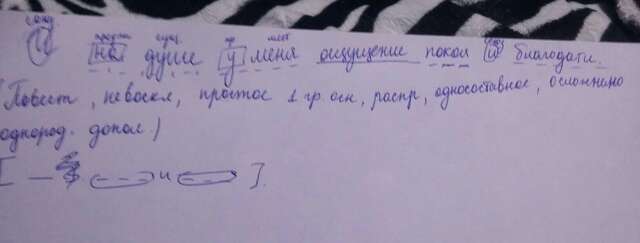 союз
предлог сущ. пр мест союз
И на душе у меня ощущение покоя и благодати.
(Повест, невоскл, простое 1 гр. осн, распр, односоставное, осложнено
однород. допол.)
[ и ].